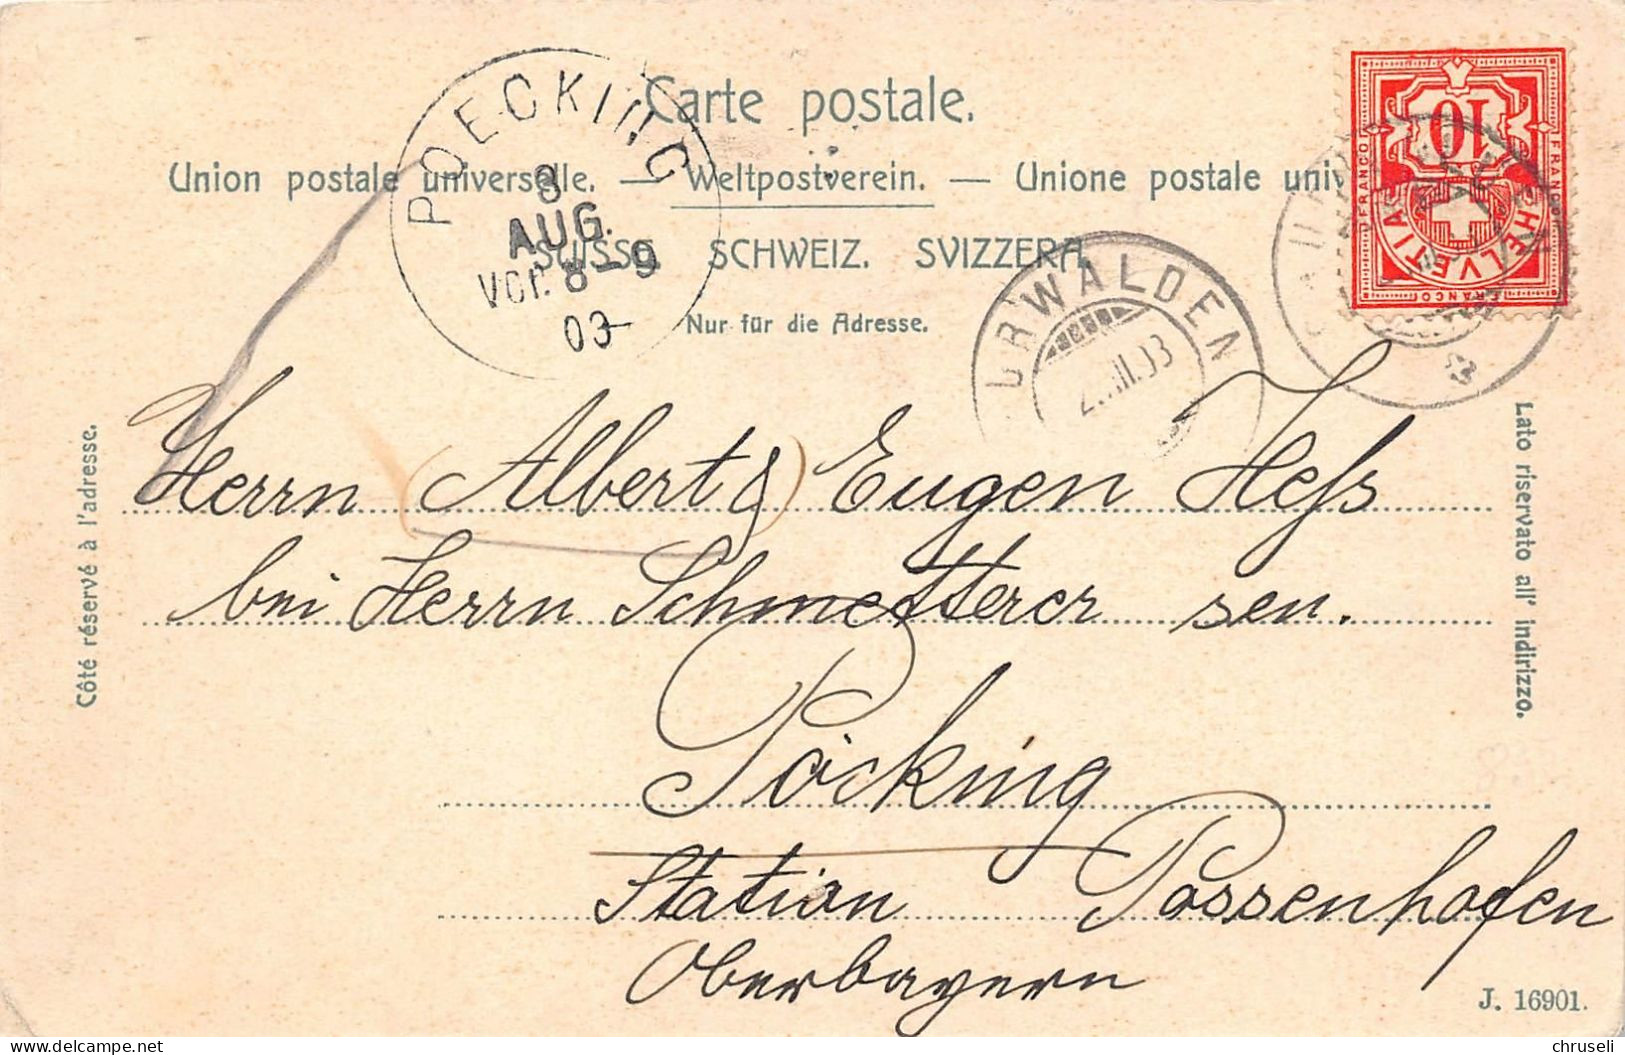 Carte postale.
Union postale universelle. — Weltpostverein. — Unione postale uni
SUISSE. SCHWEIZ. SVIZZERA.
Nur für die Adresse.
POECKING
3
AUG.
Vor. 8-9
03
URWALDEN
10
FRANCO
FRANCO
FRANCO
HELVETIA
Côté réservé à l'adresse.
Lato riservato all' indirizzo.
Herrn Albert & Eugen Hess
bei Herrn Schmetterer sen.
Pöcking
Station Possenhofen
Oberbayern
J. 16901.
chruseli
delcampe.net